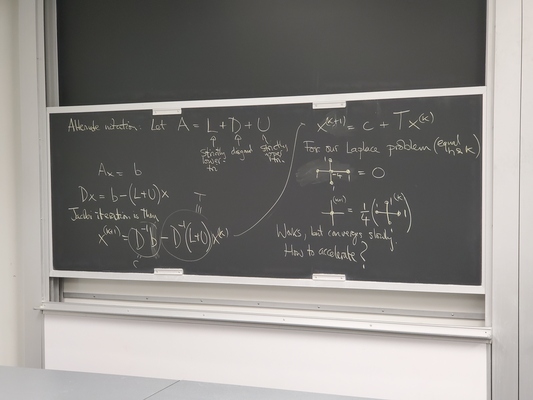 Alternate notation. Let A = L + D + U
strictly lower tri. diagonal strictly upper tri.
Ax = b
Dx = b - (L+U)x
Jacobi iteration is then
T
x^(k+1) = D^-1 b - D^-1(L+U)x^(k)
c
x^(k+1) = c + Tx^(k)
For our Laplace problem (equal h & k)
1 1 -4 1 1 = 0
(k+1) = 1/4 ( 1 1 1 1 )^(k)
Works, but converges slowly.
How to accelerate?